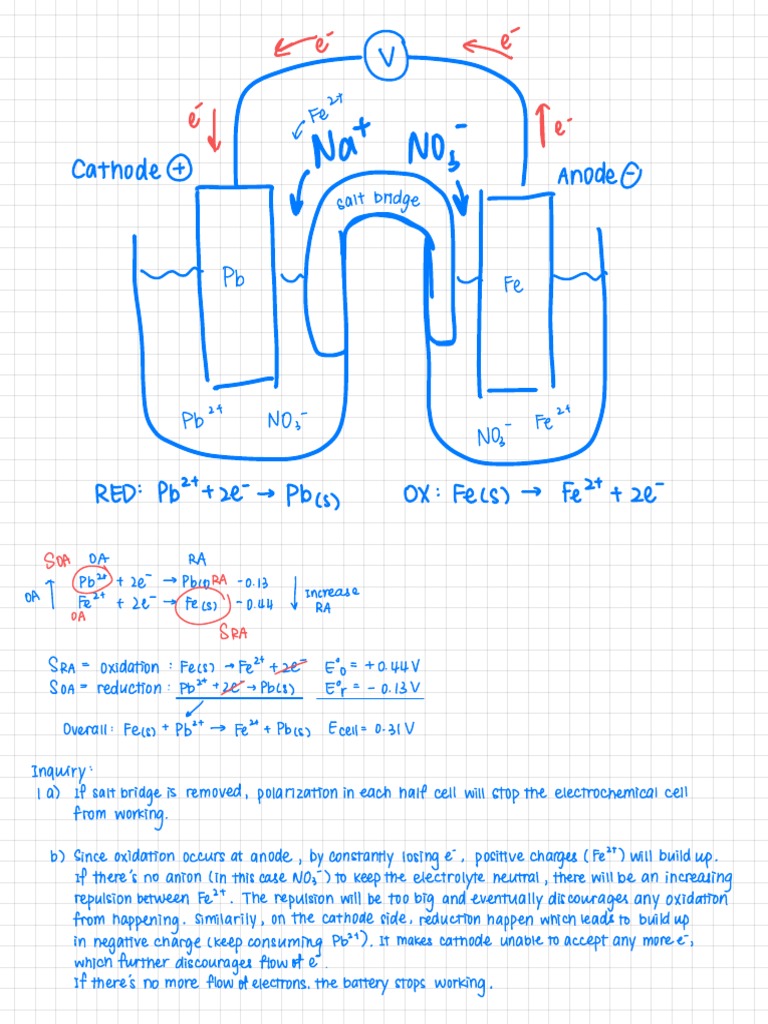 e⁻
e⁻
V
e⁻
e⁻
Fe²⁺
Na⁺
NO₃⁻
Cathode ⊕
Anode ⊖
salt bridge
Pb
Fe
Pb²⁺ NO₃⁻
NO₃⁻ Fe²⁺
RED: Pb²⁺ + 2e⁻ → Pb(s)
OX: Fe(s) → Fe²⁺ + 2e⁻
SOA OA RA
OA ↑ Pb²⁺ + 2e⁻ → Pb(s) RA -0.13 ↓ Increase RA
Fe²⁺ + 2e⁻ → Fe(s) -0.44
OA
SRA
SRA = oxidation : Fe(s) → Fe²⁺ + 2e⁻ E°o = +0.44V
SOA = reduction : Pb²⁺ + 2e⁻ → Pb(s) E°r = -0.13V
Overall: Fe(s) + Pb²⁺ → Fe²⁺ + Pb(s) Ecell = 0.31V
Inquiry:
1 a) If salt bridge is removed, polarization in each half cell will stop the electrochemical cell
from working.
b) Since oxidation occurs at anode, by constantly losing e⁻, positive charges (Fe²⁺) will build up.
If there's no anion (in this case NO₃⁻) to keep the electrolyte neutral, there will be an increasing
repulsion between Fe²⁺. The repulsion will be too big and eventually discourages any oxidation
from happening. Similarily, on the cathode side, reduction happen which leads to build up
in negative charge (keep consuming Pb²⁺). It makes cathode unable to accept any more e⁻,
which further discourages flow of e⁻.
If there's no more flow of electrons. the battery stops working.